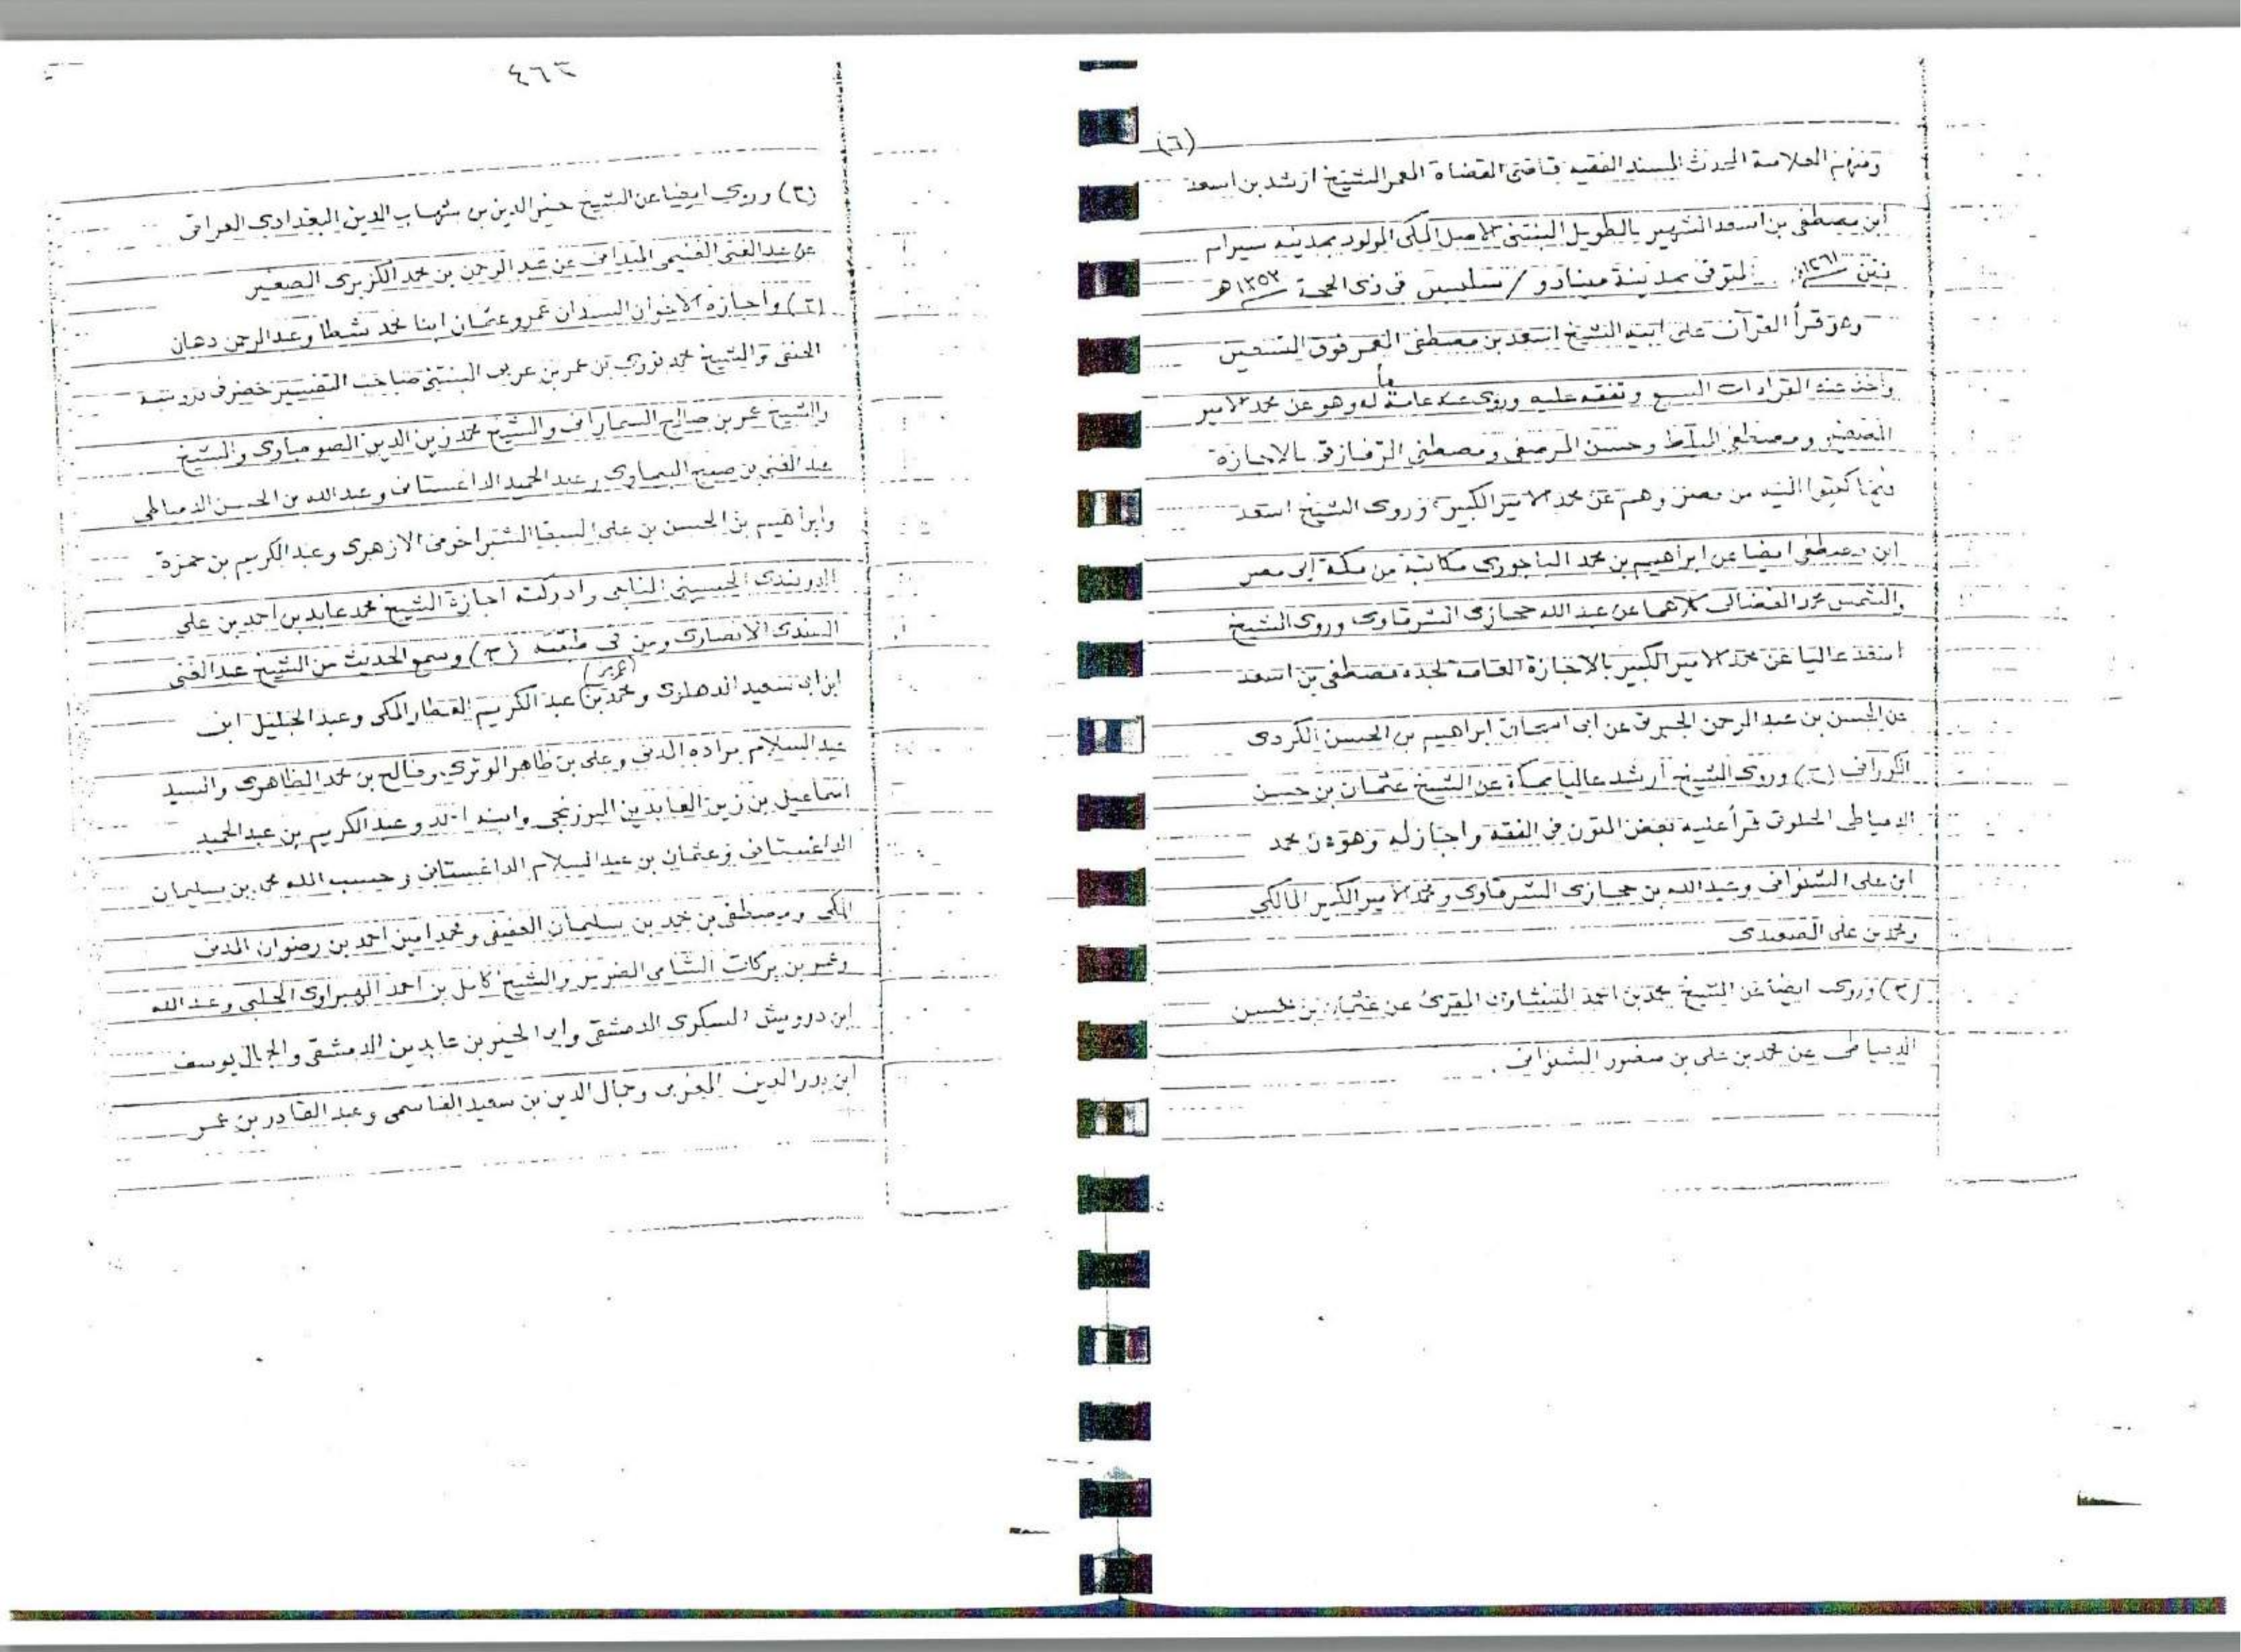 (٦)
ومنهم العلامة المحدث المسند الفقيه قاضى القضاة المعمر الشيخ ارشد بن اسعد
ابن مصطفى بن اسعد الشهير بالطويل البنتنى الاصل المكى المولود بمدينة سيرام
بنتن ١٢٦١ المتوفى بمدينة مينادو / سلبس فى ذى الحجة ١٣٥٣ هـ
وهو قرأ القرآن على ابيه الشيخ اسعد بن مصطفى المعمر فوق التسعين
وأخذ عنه القراءات السبع وتفقه عليه وروى عنه عامة ما له وهو عن محمد الامير
الصغير ومصطفى البلط وحسن المرصفى ومصطفى الزقازقى بالاجازة
فيما كتبوا اليه من مصر وهم عن محمد الامير الكبير وروى الشيخ اسعد
ابن مصطفى ايضا عن ابراهيم بن محمد الباجورى مكاتبة من مكة إلى مصر
والشمس محمد الفضالى كلاهما عن عبد الله حجازى الشرقاوى وروى الشيخ
اسعد عاليا عن محمد الامير الكبير بالاجازة العامة لجده مصطفى بن اسعد
عن الحسن بن عبد الرحمن الجبرتى عن ابى اسحاق ابراهيم بن الحسن الكردى
الكورانى (٢) وروى الشيخ أرشد عاليا بمكة عن الشيخ عثمان بن حسن
الدمياطى الخلوتى قرأ عليه بعض المتون فى الفقه واجاز له وهو عن محمد
ابن على الشنوانى وعبد الله بن حجازى الشرقاوى ومحمد الامير الكبير المالكى
ومحمد بن على الصعيدى
(٣) وروى ايضا عن الشيخ محمد بن احمد المنشاوى المقرئ عن عثمان بن حسن
الدمياطى عن محمد بن على بن منصور الشنوانى .
٤٦٣
(٣) وروى ايضا عن الشيخ خير الدين بن شهاب الدين البغدادى العراقى
عن عبد الغنى الغنيمى الميدانى عن عبد الرحمن بن محمد الكزبرى الصغير
(٤) واجازه الاخوان السيدان عمر وعثمان ابنا محمد شطا وعبد الرحمن دهان
الحنفى والشيخ محمد نووى بن عمر بن عربى البنتنى صاحب التفسير حضر فى دروسه
والشيخ عمر بن صالح السمارانى والشيخ محمد زين الدين الصومباوى والشيخ
عبد الغنى بن صبح البيماوى وعبد الحميد الداغستانى وعبد الله بن الحسن الدمياطى
وابراهيم بن الحسن بن على السقا الشبراخومى الازهرى وعبد الكريم بن حمزة
الدربندى الحسينى الناجى وادركته اجازة الشيخ محمد عابد بن احمد بن على
السندى الانصارى ومن فى طبقته (ح) وسمع الحديث من الشيخ عبد الغنى
ابن ابى سعيد الدهلوى ومحمد بن (عمر) عبد الكريم العطار المكى وعبد الجليل ابن
عبد السلام براده المدنى وعلى بن ظاهر الوترى وفالح بن محمد الظاهرى والسيد
اسماعيل بن زين العابدين البرزنجى وابنه احمد وعبد الكريم بن عبد الحميد
الداغستانى وعثمان بن عبد السلام الداغستانى وحسب الله محمد بن سليمان
المكى ومصطفى بن محمد بن سليمان العفيفى ومحمد امين احمد بن رضوان المدنى
وعمر بن بركات الشامى الضرير والشيخ كامل بن احمد الهبراوى الحلبى وعبد الله
ابن درويش السكرى الدمشقى وابى الخير بن عابدين الدمشقى والجمال يوسف
ابن بدر الدين المغربى وجمال الدين بن سعيد القاسمى وعبد القادر بن عمر